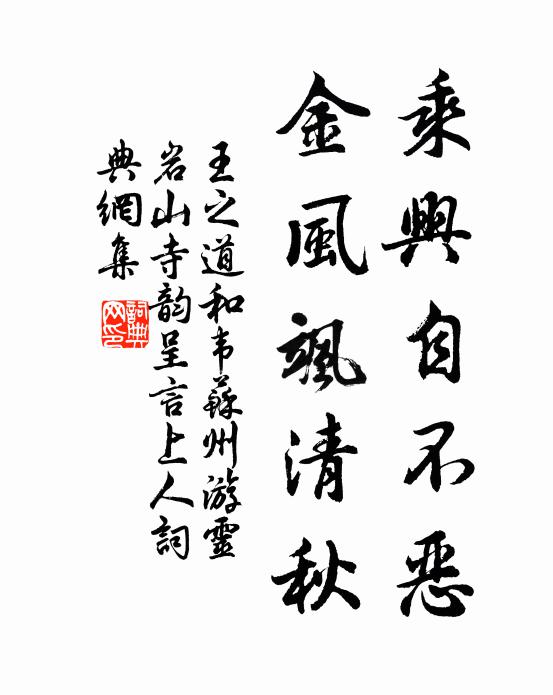 乘興自不惡
金風颯清秋
王之道和韦蘇州游靈
岩山寺韵呈言上人詞
典網集
詞典網印